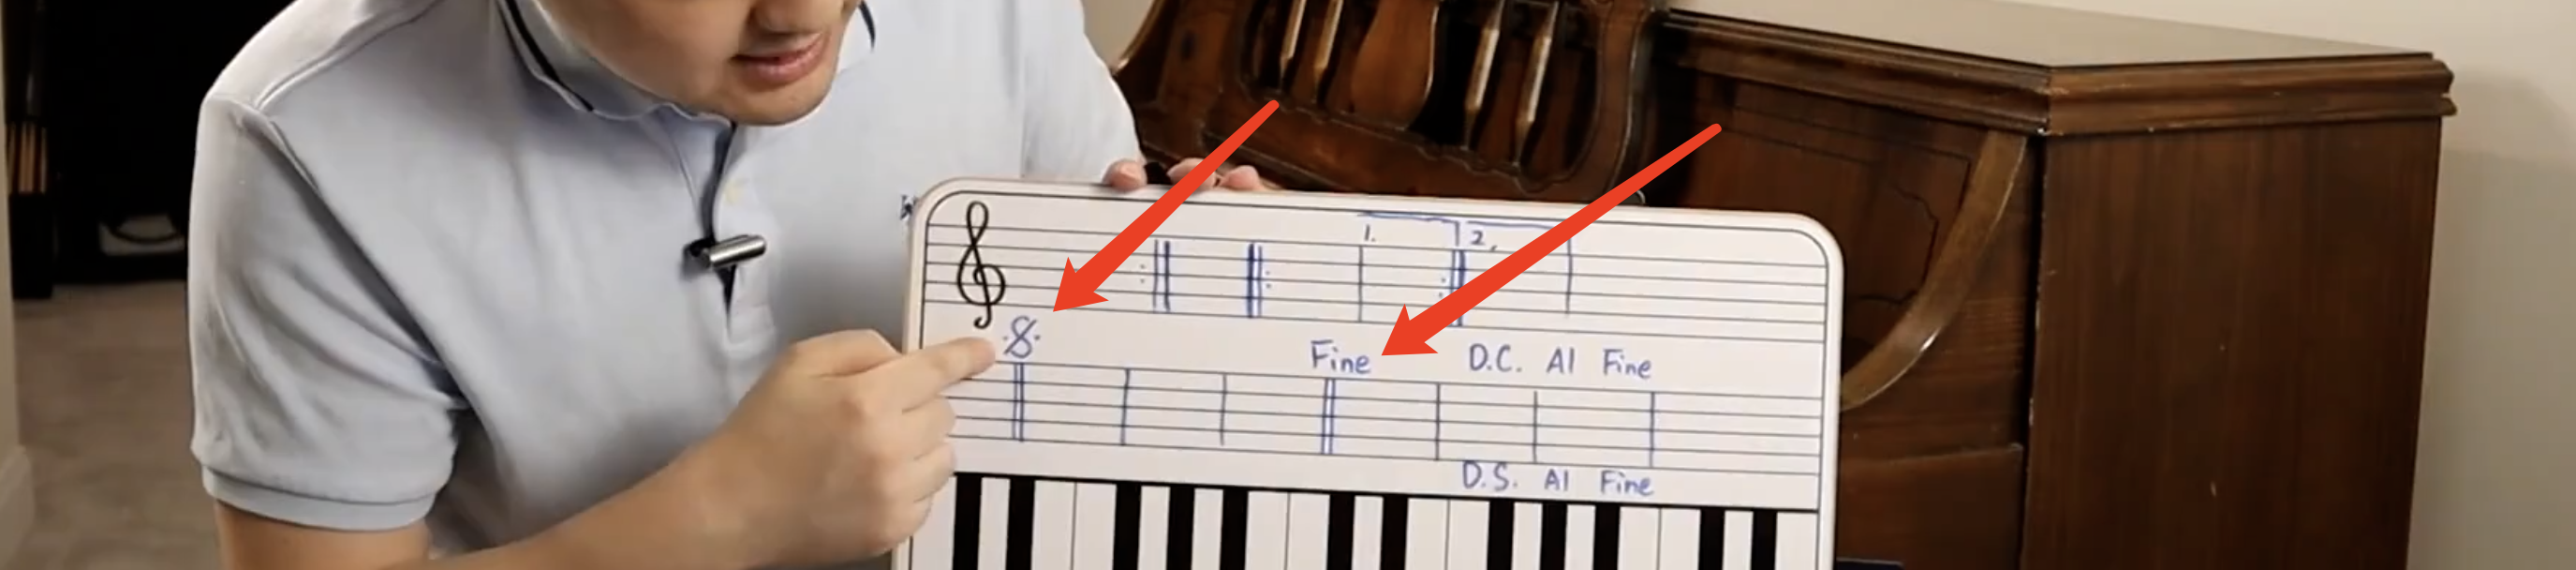 1. 2.
Fine D.C. Al Fine
D.S. Al Fine